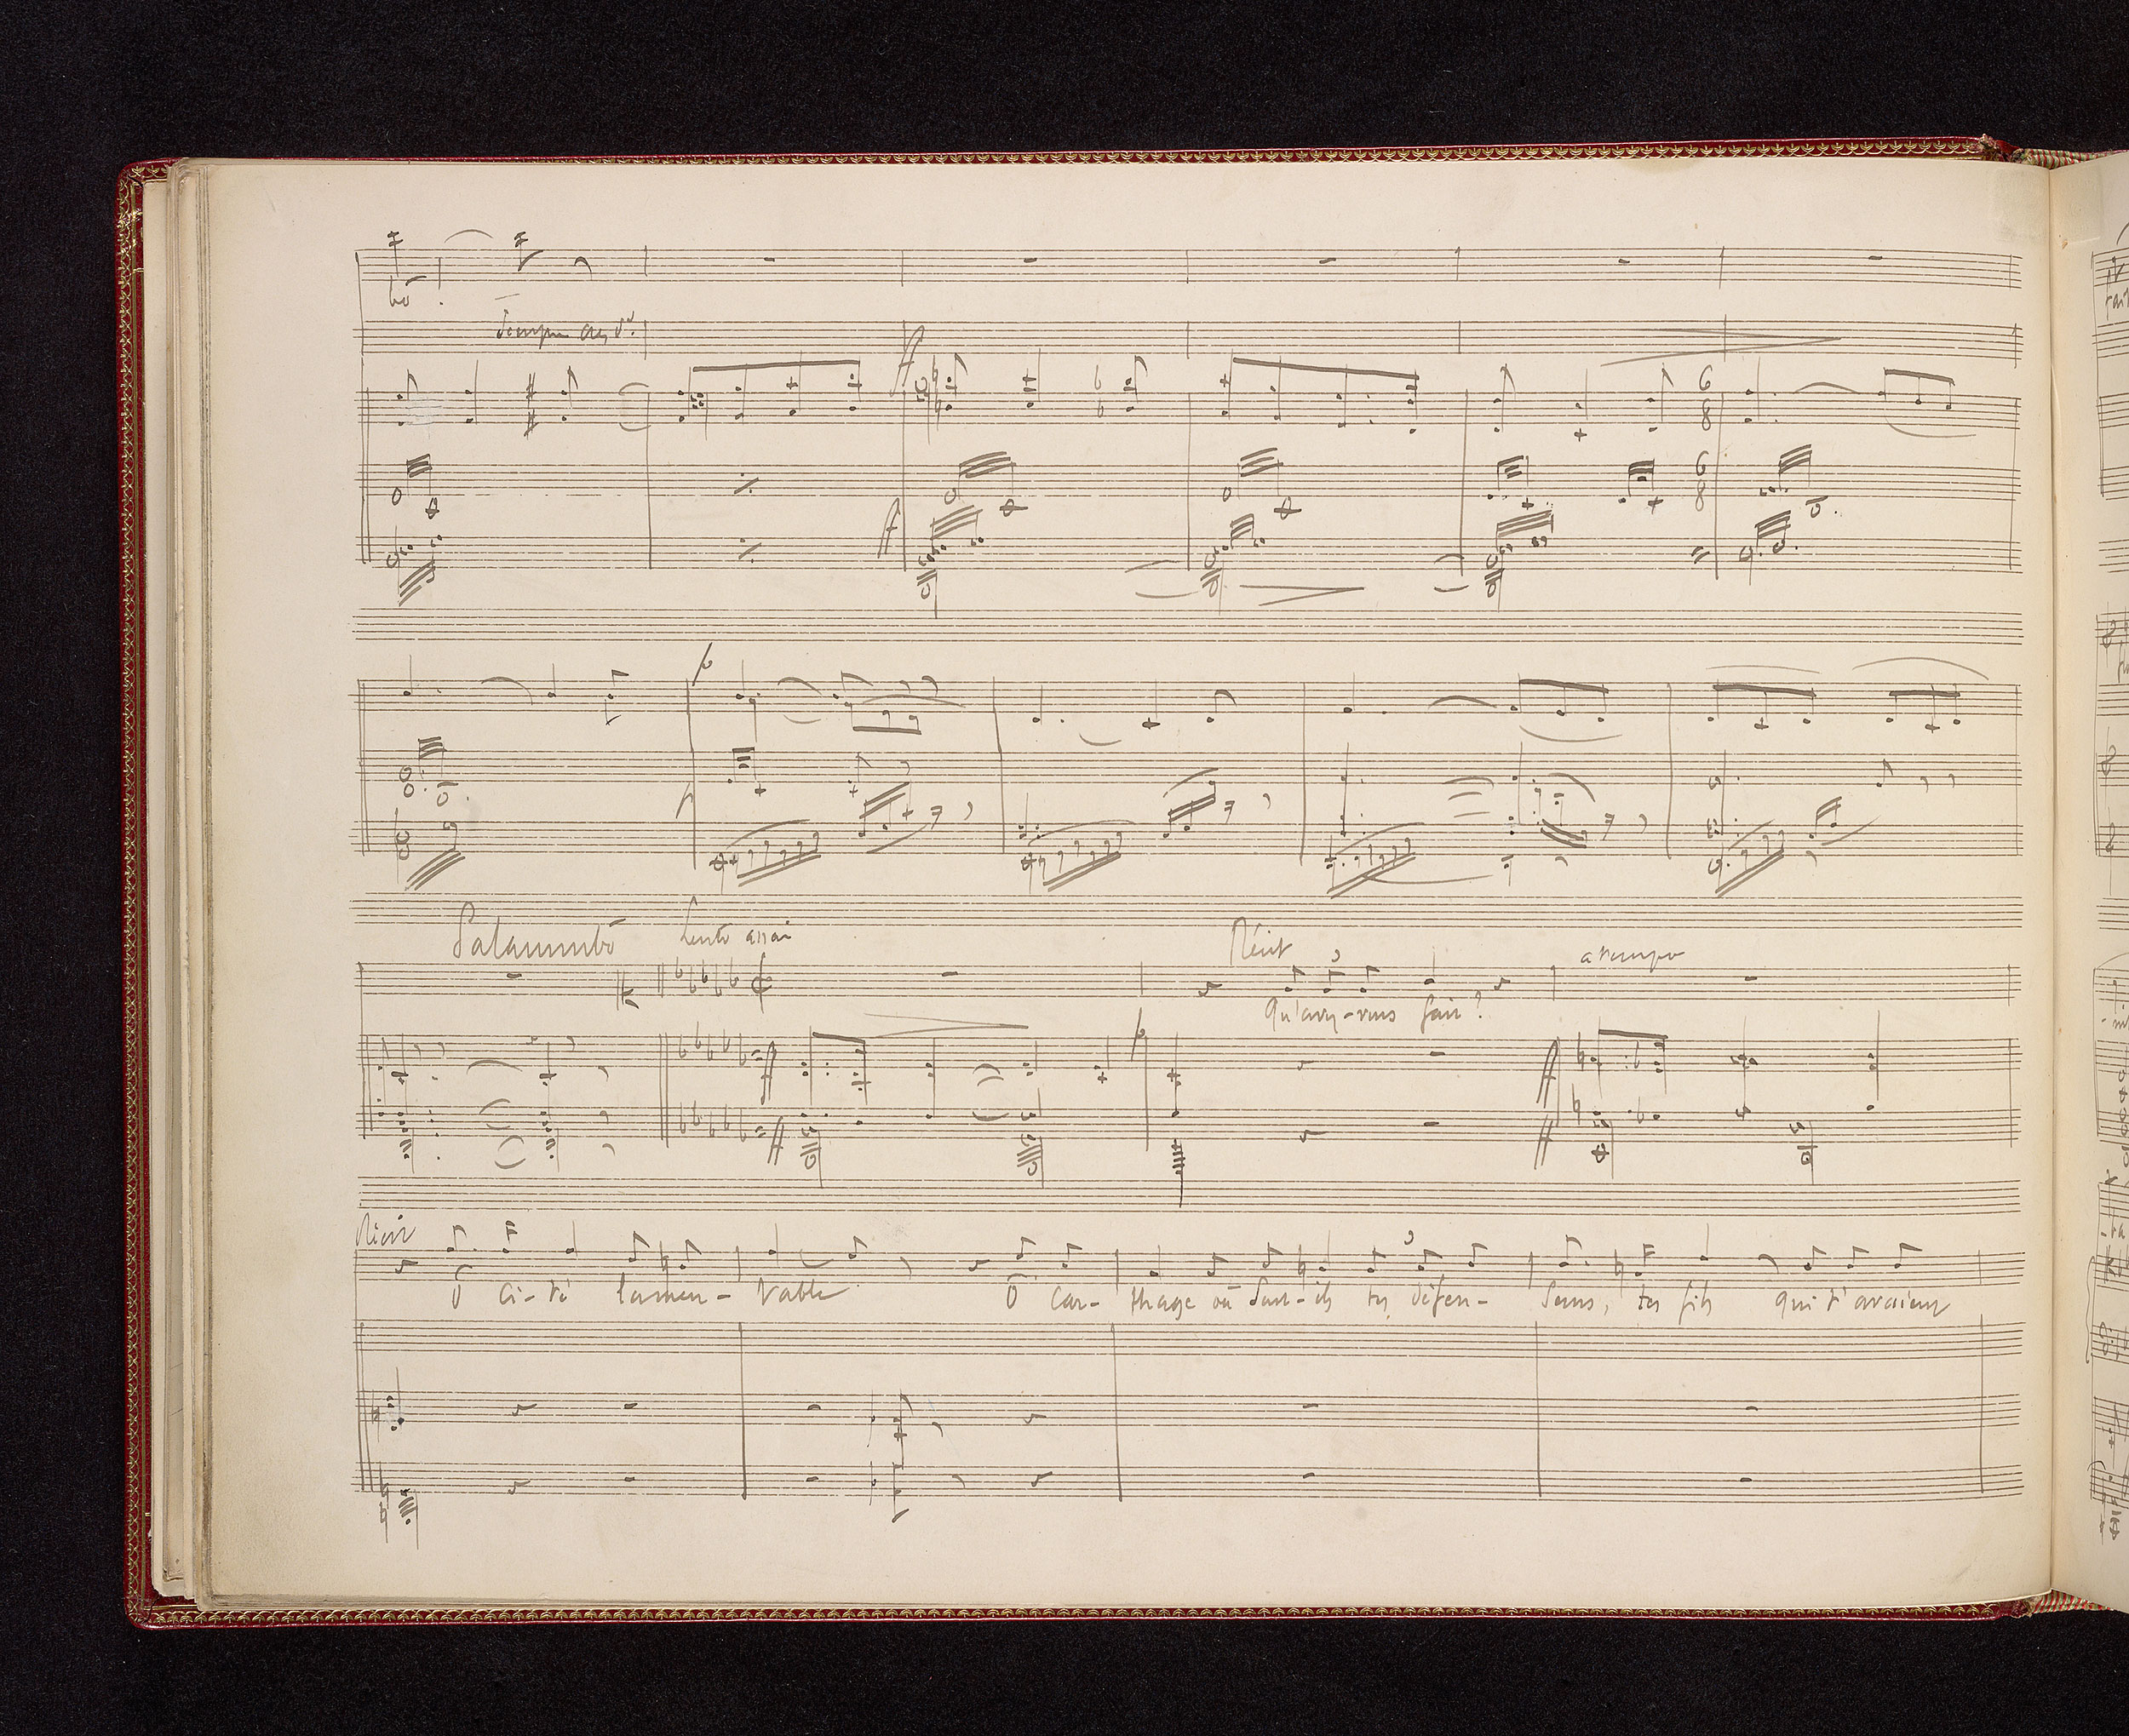 bô !
Tempo
ff
ff
6 8
6 8
p
p
Salammbô Lento assai Récit a tempo
3
Qu'avez-vous fait ?
p
ff ff
ff ff
Récit
3
Ô Ci-té lamen-table Ô Car-thage où sont-ils tes défen-seurs, tes fils qui t'avaient